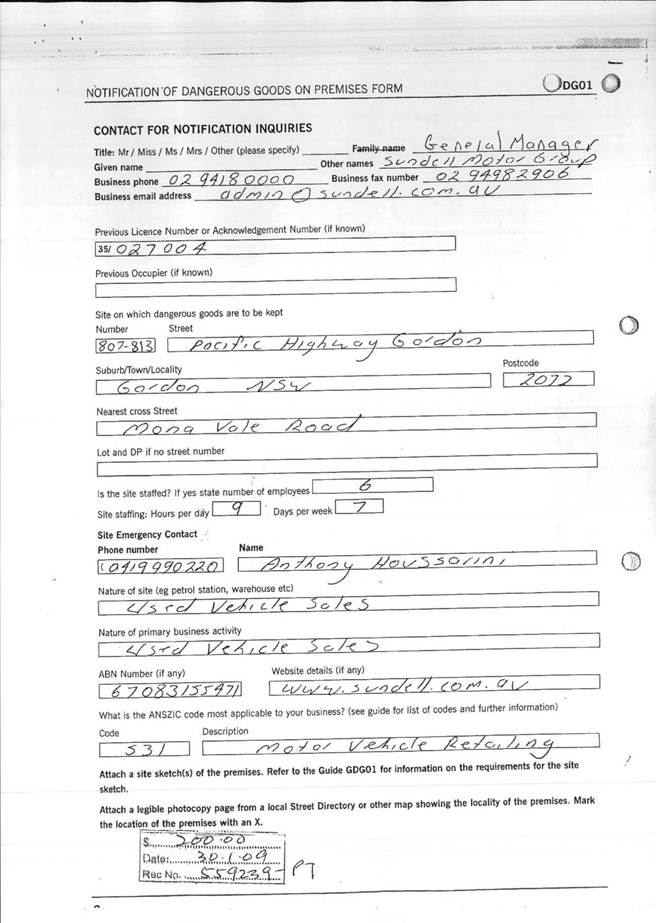 NOTIFICATION OF DANGEROUS GOODS ON PREMISES FORM DG01
CONTACT FOR NOTIFICATION INQUIRIES
Title: Mr / Miss / Ms / Mrs / Other (please specify) Family name General Manager
Given name Other names Sundell Motor Group
Business phone 02 94180000 Business fax number 02 94982906
Business email address admin@sundell.com.au
Previous Licence Number or Acknowledgement Number (if known)
35/ 027004
Previous Occupier (if known)
Site on which dangerous goods are to be kept
Number Street
807-813 Pacific Highway Gordon
Suburb/Town/Locality Postcode
Gordon NSW 2072
Nearest cross Street
Mona Vale Road
Lot and DP if no street number
Is the site staffed? If yes state number of employees 6
Site staffing: Hours per day 9 Days per week 7
Site Emergency Contact
Phone number Name
0419990220 Anthony Houssarini
Nature of site (eg petrol station, warehouse etc)
Used Vehicle Sales
Nature of primary business activity
Used Vehicle Sales
ABN Number (if any) Website details (if any)
67083155971 www.sundell.com.au
What is the ANSZIC code most applicable to your business? (see guide for list of codes and further information)
Code Description
531 Motor Vehicle Retailing
Attach a site sketch(s) of the premises. Refer to the Guide GDG01 for information on the requirements for the site
sketch.
Attach a legible photocopy page from a local Street Directory or other map showing the locality of the premises. Mark
the location of the premises with an X.
$ 200.00
Date: 30.1.09
Rec No. 559239 PT